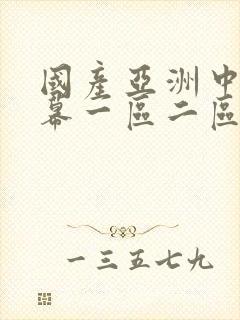 國產亞洲中
幕一區二區
一三五七九